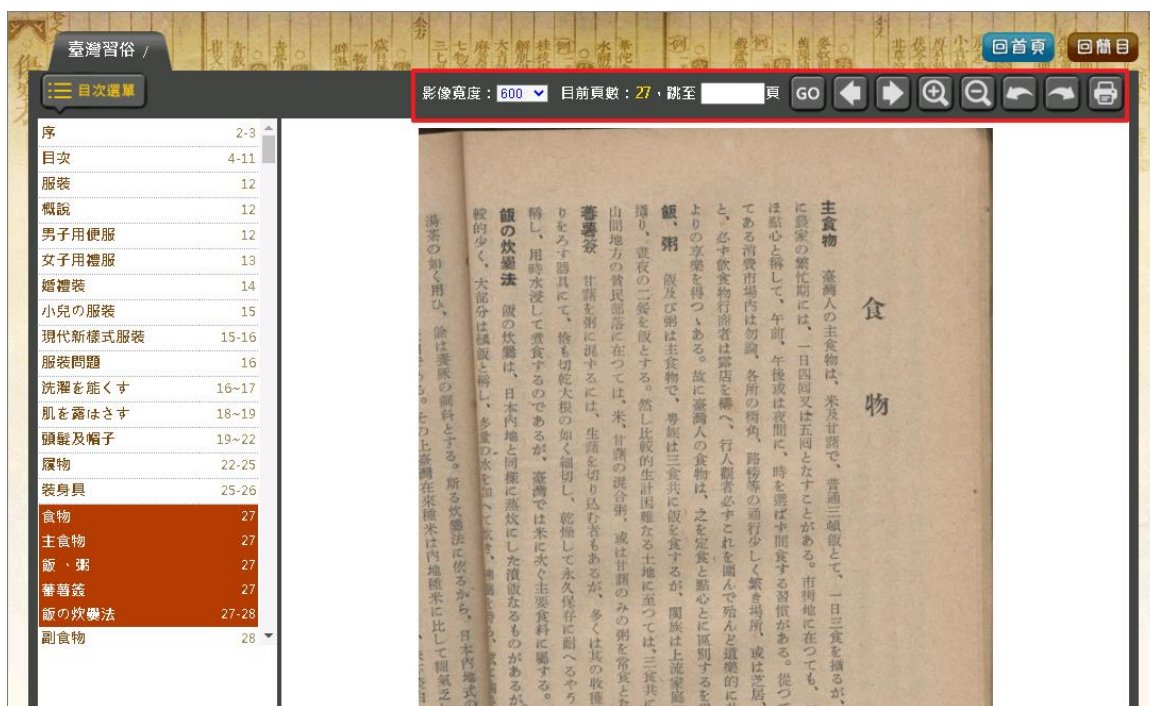 臺灣習俗 /
回首頁
回簡目
目次選單
影像寬度：600 目前頁數：27，跳至 頁 GO
序 2-3
目次 4-11
服裝 12
概說 12
男子用便服 12
女子用禮服 13
婚禮裝 14
小兒の服裝 15
現代新樣式服裝 15-16
服裝問題 16
洗濯を能くす 16~17
肌を露はさす 18~19
頭髮及帽子 19~22
履物 22-25
裝身具 25-26
食物 27
主食物 27
飯、粥 27
蕃薯簽 27
飯の炊爨法 27-28
副食物 28
食物
主食物 臺灣人の主食物は、米及甘藷で、普通三頓飯とて、一日三食を攝るが、
に農家の繁忙期には、一日四回又は五回となすことがある。市街地に在つても、
ほ點心と稱して、午前、午後或は夜間に、時を選ばず間食する習慣がある。從つ
てある消費市場内は勿論、各所の街角、路傍等の通行少しく繁き場所、或は芝居、
と、必ず飲食物行商者は露店を構へ、行人觀者必ずこれを圍んで殆んど道樂的に
よりの享樂を得つゝある。故に臺灣人の食物は、之を定食と點心とに區別するを
飯、粥 飯及び粥は主食物で、粤族は三食共に飯を食するが、閩族は上流家庭
攝り、晝夜の二餐を飯とする。然し比較的生計困難なる土地に至つては、三食共に
山間地方の貧民部落に在つては、米、甘藷の混合粥、或は甘藷のみの粥を常食とな
蕃薯簽 甘藷を粥に混ずるには、生藷を切り込む者もあるが、多くは其の收穫
りをろす器具にて、恰も切乾大根の如く細切し、乾燥して永久保存に耐へるやう
稱し、用時水浸して煮食するのであるが、臺灣では米に次ぐ主要食料に屬する。
飯の炊爨法 飯の炊爨は、日本内地と同樣に蒸炊にした濆飯なるものがあるが
較的少く、大部分は撈飯と稱し、多量の水を加へて
湯茶の如く用ひ、餘は養豚の飼料とする。斯る炊爨法に依るから、日本内地式の
その上臺灣在來種米は内地種米に比して糊氣乏